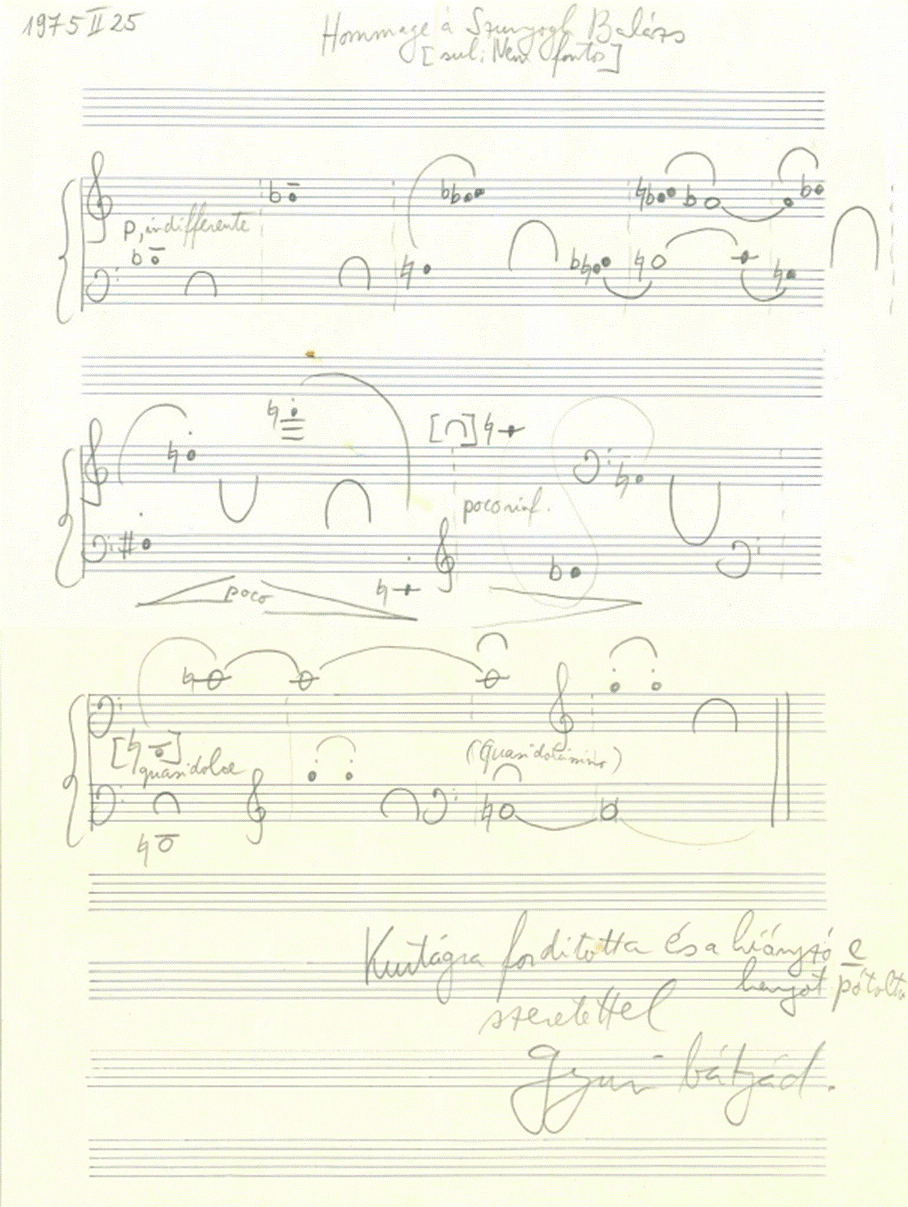 1975 II 25
Hommage á Szunyogh Balázs
[sul: Nem fontos]
p, indifferente
poco rinf.
poco
quasi dolce
(quasi dolcissimo)
Kurtágra fordította és a hiányzó e
hangot pótolta
szeretettel
Gyuri bátyád.